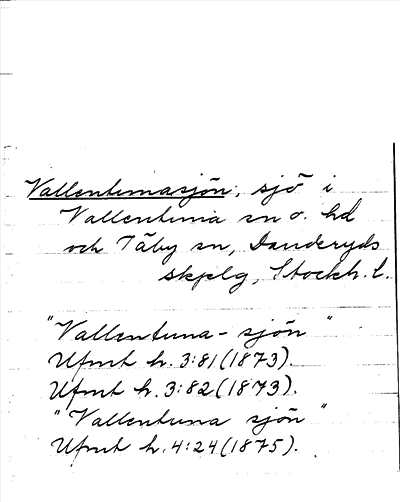 Vallentunasjön, sjö i
Vallentuna sn o. hd
och Täby sn, Danderyds
skplg, Stockh. l.
"Vallentuna-sjön"
Ufmt h. 3:81 (1873).
Ufmt h. 3:82 (1873).
"Vallentuna sjön"
Ufmt h. 4:24 (1875).